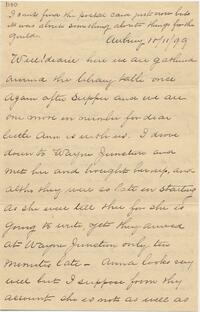 I can't find the postal card just now but
it was about something about things for the
garden.
Aubury 10/11/99
Well! dearie here we are gathered
around the library table once
again after supper and we are
one more in number for dear
little Ann is with us. I drove
down to Wayne Junction and
met her and brought her up, and
altho they were so late in starting
as she will tell thee for she is
going to write, yet they arrived
at Wayne Junction only two
minutes late - Anna looks very
well but I suppose from thy
account she is not as well as